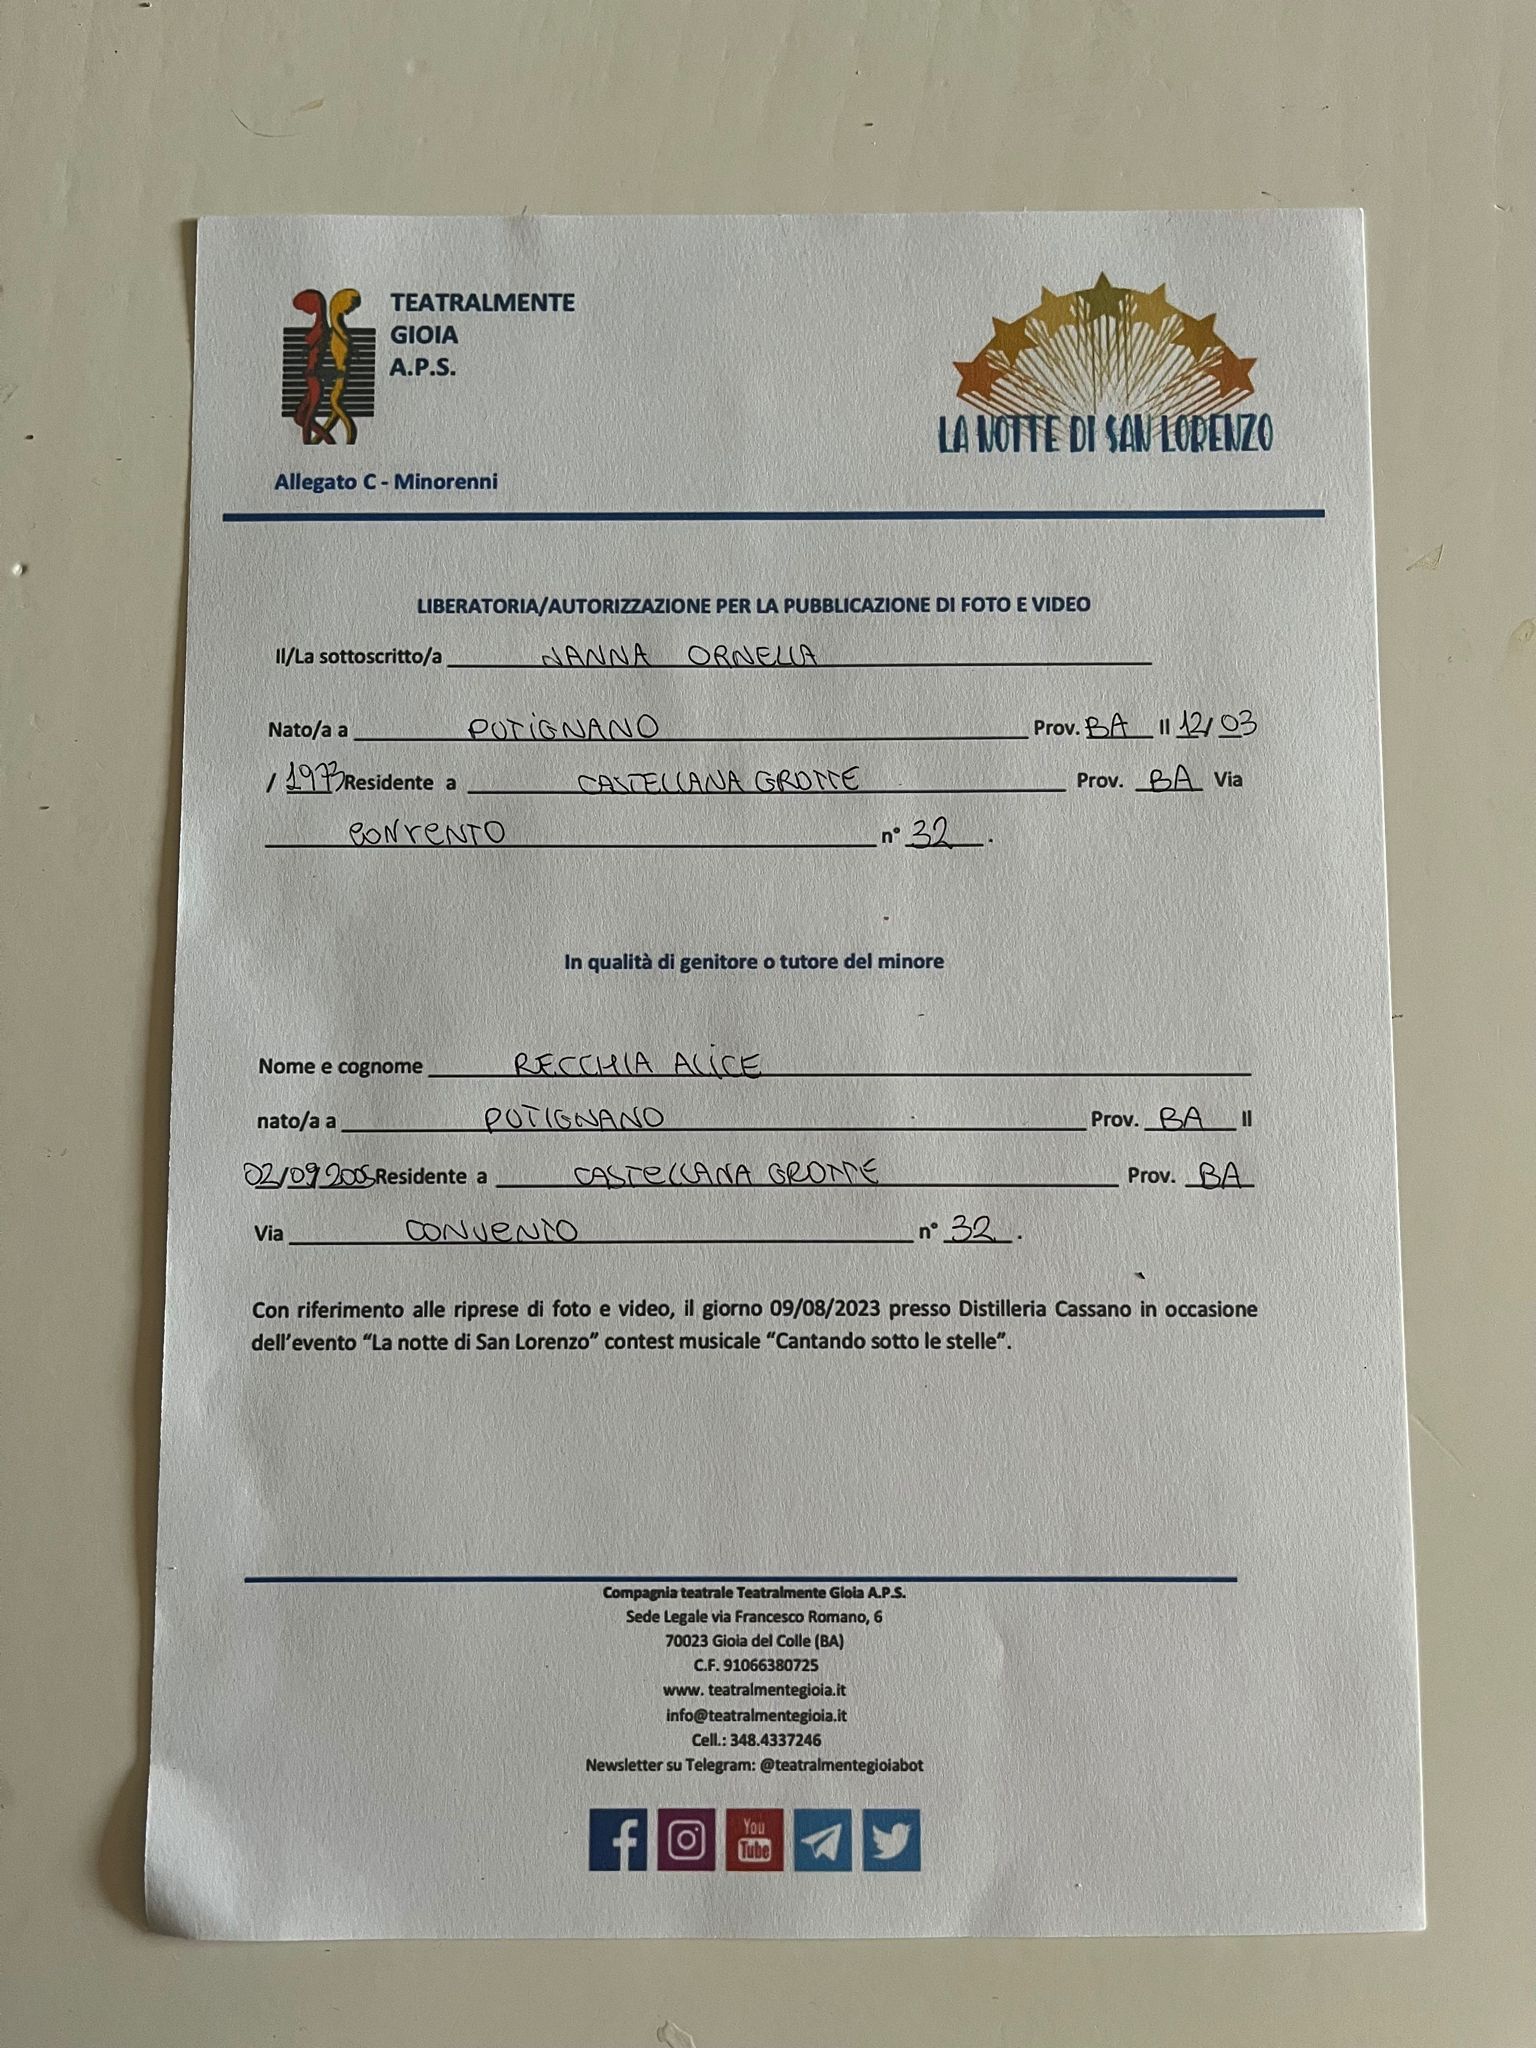 TEATRALMENTE
GIOIA
A.P.S.
LA NOTTE DI SAN LORENZO
Allegato C - Minorenni
LIBERATORIA/AUTORIZZAZIONE PER LA PUBBLICAZIONE DI FOTO E VIDEO
Il/La sottoscritto/a NANNA ORNELLA
Nato/a a PUTIGNANO Prov. BA Il 12/03
/ 1973 Residente a CASTELLANA GROTTE Prov. BA Via
CONVENTO n° 32.
In qualità di genitore o tutore del minore
Nome e cognome RECCHIA ALICE
nato/a a PUTIGNANO Prov. BA Il
02/09 2005 Residente a CASTELLANA GROTTE Prov. BA
Via CONVENTO n° 32.
Con riferimento alle riprese di foto e video, il giorno 09/08/2023 presso Distilleria Cassano in occasione
dell'evento “La notte di San Lorenzo” contest musicale “Cantando sotto le stelle”.
Compagnia teatrale Teatralmente Gioia A.P.S.
Sede Legale via Francesco Romano, 6
70023 Gioia del Colle (BA)
C.F. 91066380725
www. teatralmentegioia.it
info@teatralmentegioia.it
Cell.: 348.4337246
Newsletter su Telegram: @teatralmentegioiabot
You
Tube